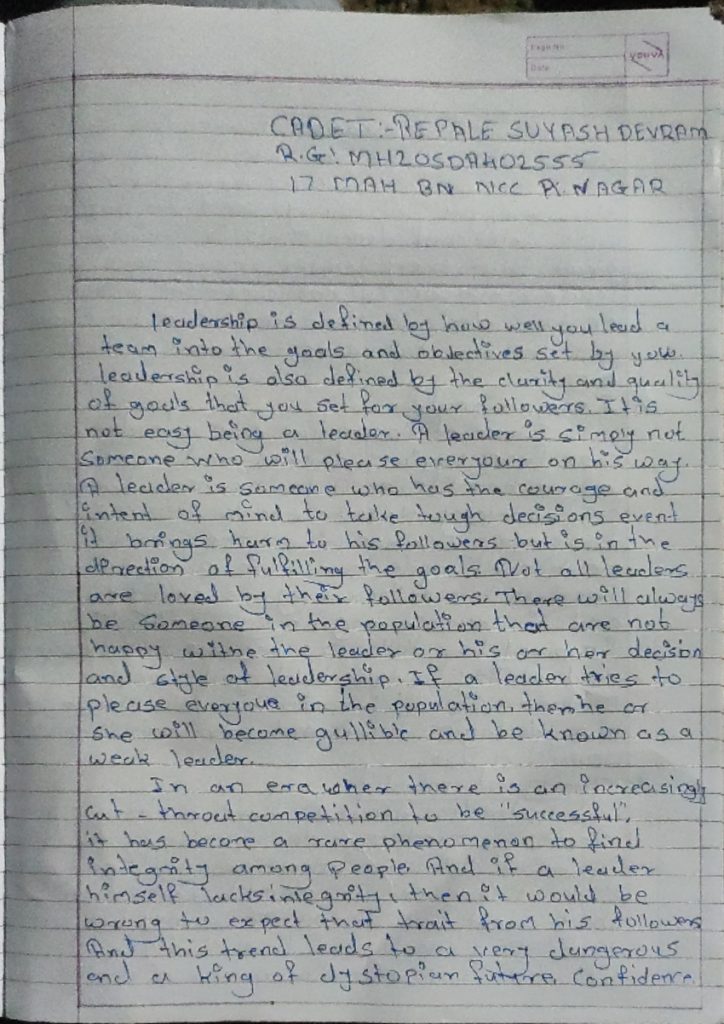 Page No.
Date
YOUVA
CADET:- REPALE SUYASH DEVRAM
R.G: MH20SDA402555
17 MAH BN NCC A. NAGAR
leadership is defined by how well you lead a
team into the goals and objectives set by you.
leadership is also defined by the clarity and quality
of goals that you set for your followers. It is
not easy being a leader. A leader is simply not
Someone who will please everyour on his way.
A leader is someone who has the courage and
intent of mind to take tough decisions event
it brings harm to his followers but is in the
direction of fulfilling the goals. Not all leaders
are loved by their followers. There will always
be Someone in the population that are not
happy withe the leader or his or her decision
and style of leadership. If a leader tries to
please everyoue in the population, then he or
she will become gullible and be known as a
weak leader.
In an era wher there is an increasingly
cut-throut competition to be "successful",
it has become a rare phenomenon to find
integrity among people. And if a leader
himself lacks integrity, then it would be
wrong to expect that trait from his followers
And this trend leads to a very dangerous
and a king of dystopian future. Confidence